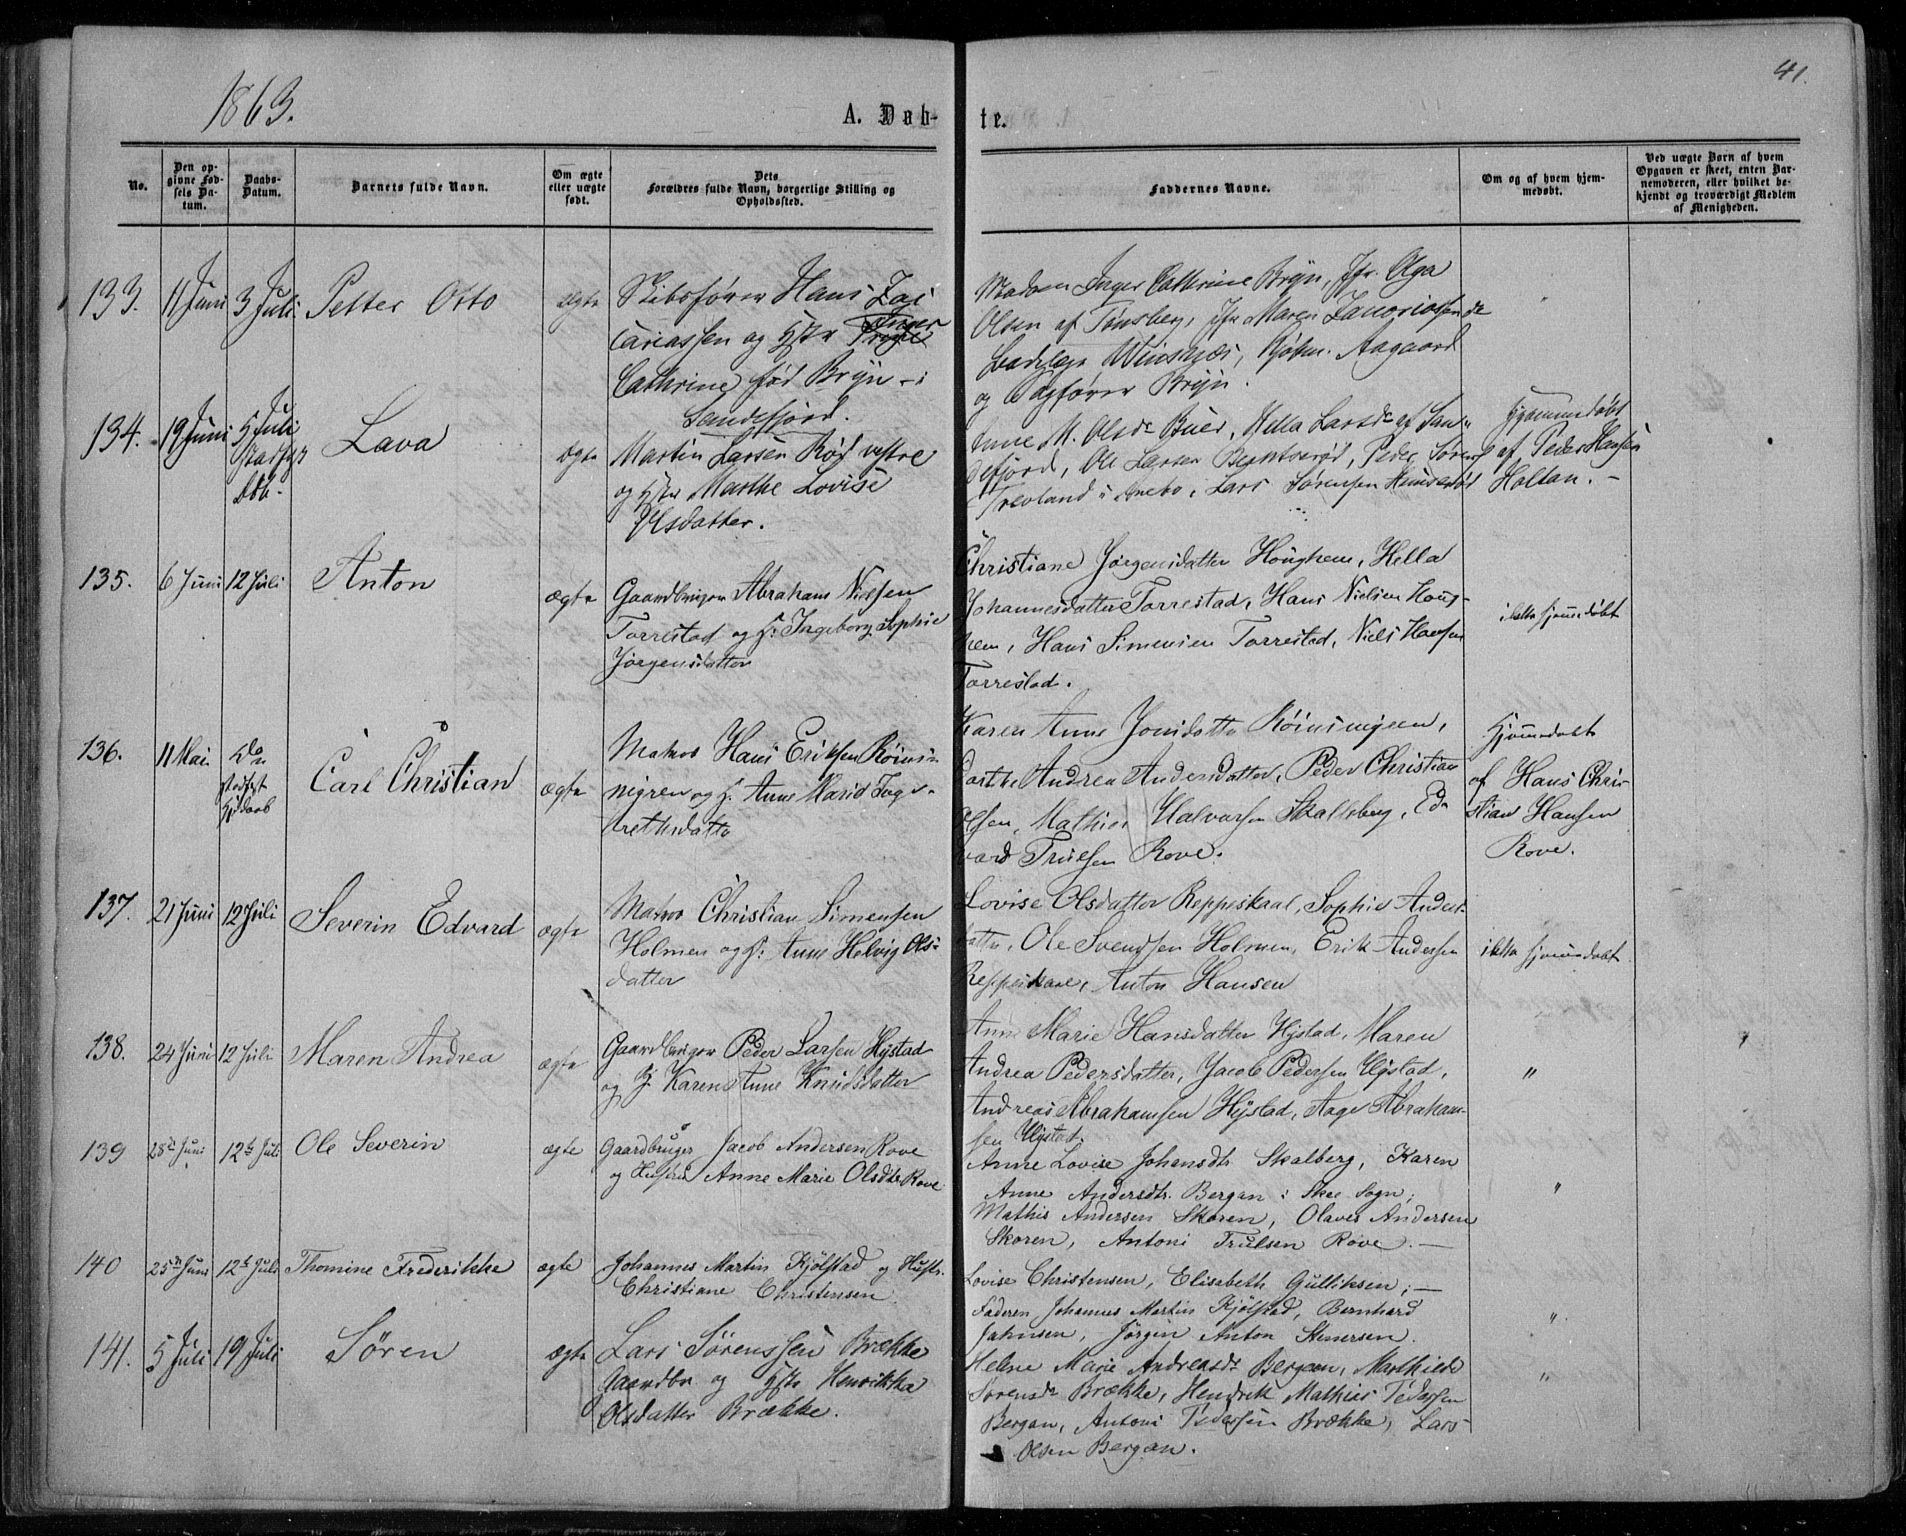 1863.
41.
A. Døb-
te.
No.
Den op-
givne Fød-
sels Da-
tum.
Daabs-
Datum.
Barnets fulde Navn.
Om ægte
eller uægte
født.
Dets
Forældres fulde Navn, borgerlige Stilling og
Opholdssted.
Faddernes Navne.
Om og af hvem hjem-
medøbt.
Ved uægte Børn af hvem
Opgaven er skeet, enten Bar-
nemoderen, eller hvilket be-
kjendt og troværdigt Medlem
af Menigheden.
133. 11 Juni 3 Juli Petter Otto ægte
Skibsfører Hans Zac
cariassen og Hstr Inger
Cathrine fød Bryn - i
Sandefjord.
Madam Inger Cathrine Bryn, Jfr. Aga
Olsen af Tønsberg, Jfr Maren
Aagaard
og Bryn.
"
134. 19 Juni 5 Juli
Lava ægte
Martin Larsen Rød vestre
og Hstr Marthe Lovise
Olsdatter.
Anne M. Olsdr Buer, Hella Larsdr af San-
defjord, Ole Larsen Berntserød, Peder
i Anebo, Lars Sørensen
Hjemmedøbt
af Peder Hansen
Holtan. -
135. 6 Juni 12 Juli Anton ægte
Gaardbruger Abraham Nielsen
Torrestad og H: Ingeborg Sophie
Jørgensdatter
Christiane Jørgensdatter Houghem, Hella
Johannesdatter Torrestad, Hans Nielsen Houg-
hem, Hans Simensen Torrestad, Niels Hansen
Torrestad.
ikke hjemmedøbt
136. 11 Mai
Carl Christian ægte
Matros Hans Eriksen Röinis-
nigren og H. Anne Marie Ing-
brethsdatter
Karen Anne Jonsdatter
Andrea Andersdatter, Peder Christian
Olsen, Mathias Halvorsen Skalleberg, Ed-
vard Trulsen Rove.
Hjemmedøbt
af Hans Chri-
stian Hansen
Rove.
137. 21 Juni 12 Juli Severin Edvard ægte
Matros Christian Simensen
Holmen og H: Anne Helvig Ols-
datter
Lovise Olsdatter Reppeskaal, Sophie Anders-
datter, Ole Svendsen Holmen, Erik Andersen
Anton Hansen
ikke hjemmedøbt
138. 24 Juni 12 Juli Maren Andrea ægte
Gaardbruger Peder Larsen Hystad
og H. Karen Anne Knudsdatter
Anne Marie Hansdatter Hystad, Maren
Andrea Pedersdatter, Jacob Pedersen Hystad,
Andreas Abrahamsen Hystad, Aage Abraham-
sen Hystad.
"
139 28de Juni 12te Juli Ole Severin ægte
Gaardbruger Jacob Andersen Rove
og Hustru Anne Marie Olsdtr Rove
Anne Lovise Johansdtr Skalberg, Karen
Anne Andersdtr. Bergan i Skee Sogn;
Mathis Andersen Skoren, Olaves Andersen
Skoren, Antoni Trulsen Rove. -
"
140 25de Juni 12te Juli Thomine Frederikke ægte
Johannes Martin Kjölstad og Hustr.
Christiane Christensen
Lovise Christensen, Elisabeth Gulliksen; -
Faderen Johannes Martin Kjölstad, Bernhard
Jahnsen, Jørgin Anton Stenersen.
"
141. 5 Juli 19 Juli Søren ægte
Lars Sörenssen Brække
Gaardbr og Hstr Henrikka
Olsdatter Brække.
Helene Marie Andreasdr Bergan, Mathilde
Sørensdr Brække, Hendrik Mathias Pedersen
Bergan, Antoni Pedersen Brække, Lars
Olsen Bergan.
"